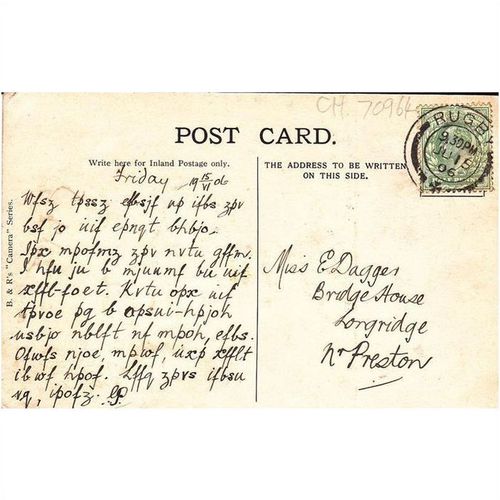 CH. 7096
POST CARD.
RUGBY
9.30 PM
JU 15
06
Write here for Inland Postage only.
THE ADDRESS TO BE WRITTEN
ON THIS SIDE.
B. & R's "Camera" Series.
Friday 19 15/VI 06
Wfsz tpssz efbsjf up ifbs zpv
bsf jo uif epngt bhbjo.
Ipx mpofmz zpv nvtu gffm.
I hfu ju b mjuumf bu uif
xffl-foet. Kvtu opx uif
tpvoe pg b opsui-hpjoh
usbjo nblft nf mpoh, efbs.
Ofwfs njoe, mpwf, uxp xfflt
ibwf hpof. Lffq zpvs ifbsu
vq, ipofz.
Miss E Dagger
Bridge House
Longridge
Nr Preston